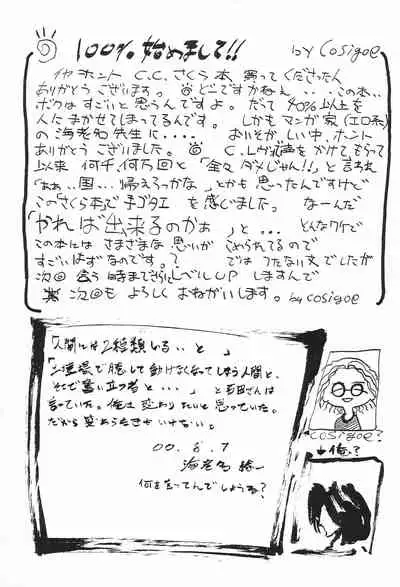 100% 始めまして!! by cosigoe
イヤ ホント C.C.さくら本、買ってくださった人
ありがとう ございます。 どーですかねぇ…この本…
ボクは すごいと思うんですよ。だって 40%以上を
人に まかせてしまってるんです。しかも マンガ家(エロ系)
の海老名先生に・・・・ おりそがしい中、ホント
ありがとう ございました。 C.Lヴォに声を かけて、もらって
以来 何千、何万回と「全々 ダメじゃん!!」と 言われ
「ああ..国... 帰えろっかな」とかも 思ったんですけど
このさくら本で 手ゴタエ を感じました。 なーんだ
「やれば出来るのかぁ」と... とんなワケで
この本には さまざまな 思いが こめられてるので
すごいはずなのです。? では つたない文でしたが
次回 会う時まで さらに レベルUP しますんで
次回も よろしく おねがいします。 by cosigoe
「人間には2種類いる・・と」
「逆境で臆して動けなくなってしまう人間と、
そこで奮い立つ者と・・・」と 吉田さんは
言っていた。俺は変わりたいと思っていた。
だから変わらなきゃいけない。
00.8.7
海老名 務一
何を言ってんでしょうね?
cosigoe?
↓俺?